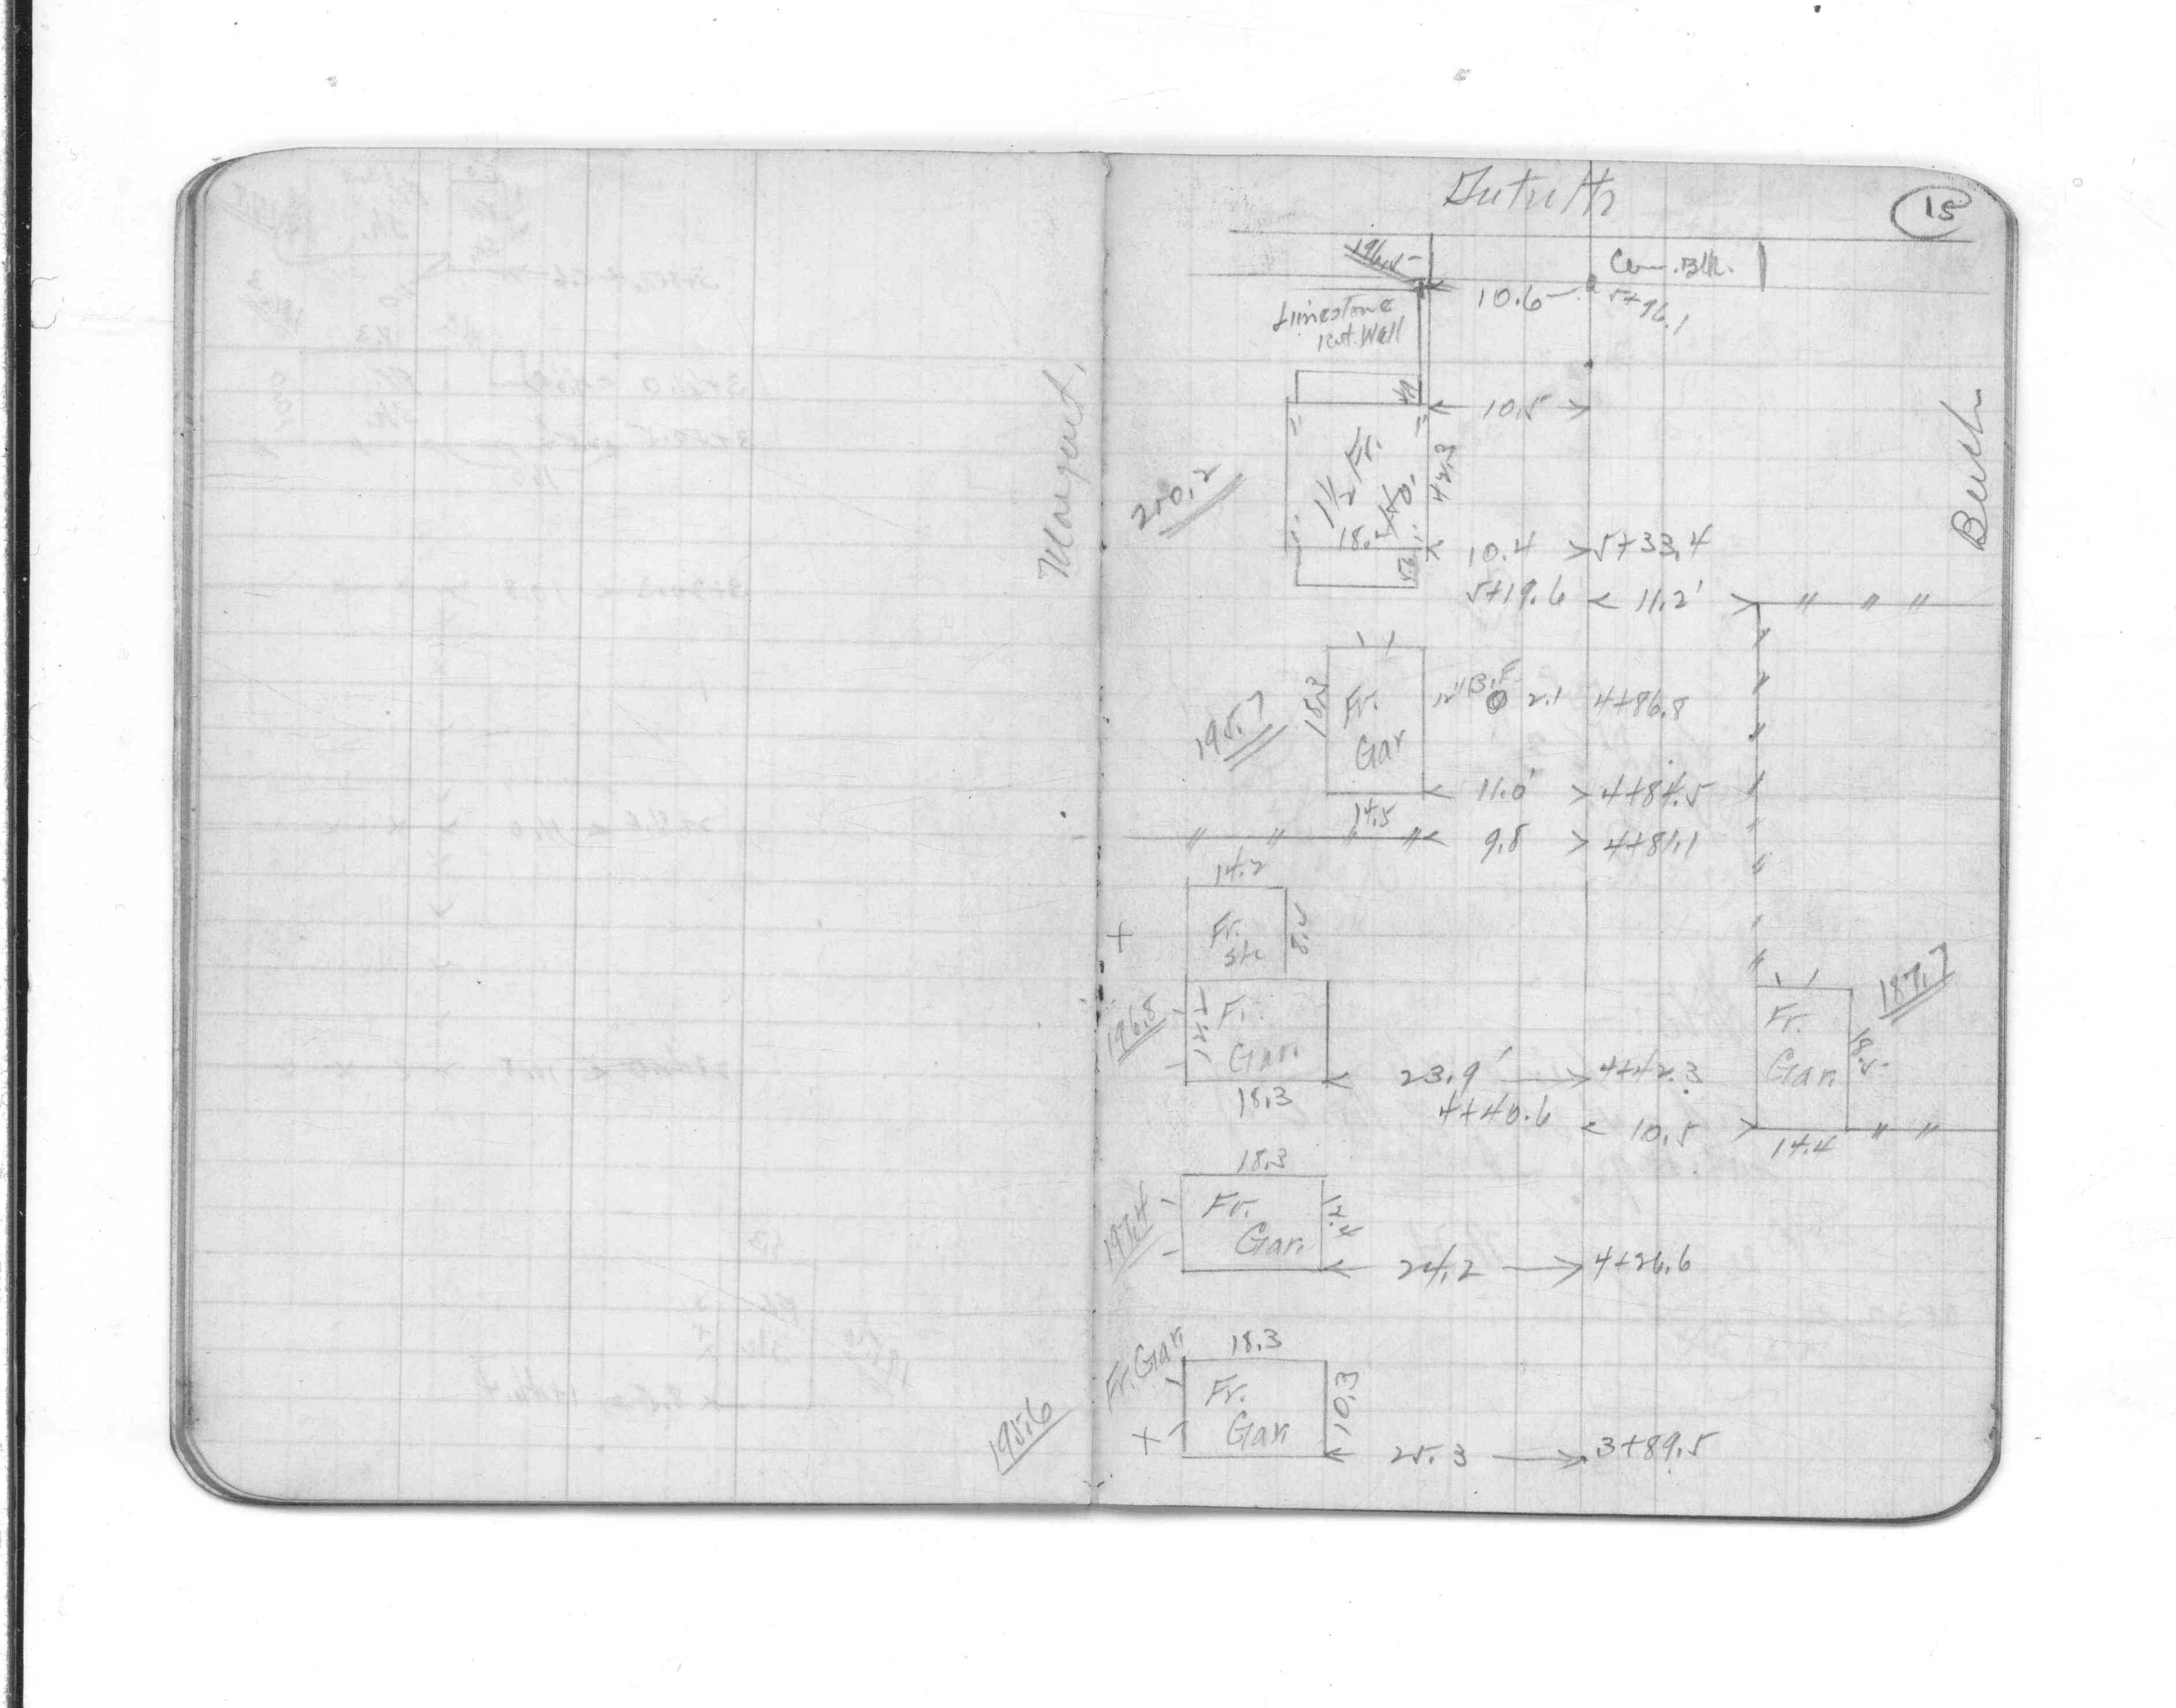 15
196.5
Cem. Blk.
10.6
5+96.1
Limestone
Ret. Wall
10.5
1 1/2 Fr.
42.3
200.2
10.4 > 5+33.4
5.6
5+19.6 < 11.2' > " " "
18.3
Fr.
Gar
12" B.F.
2.1 4+86.8
195.7
< 11.0' > 4+84.5
14.5
" " " " < 9.8 > 4+81.1
14.2
X
Fr.
Sh
8.5
187.7
196.8
Fr.
Gar.
Fr.
Gar.
18.5
< 23.9' > 4+42.3
18.3
4+40.6 < 10.5 > " "
14.4
18.3
197.4
Fr.
Gar.
12.4
< 24.2 > 4+26.6
18.3
Fr. Gar.
Fr.
Gar.
10.3
X
195.6
< 25.3 > 3+89.5